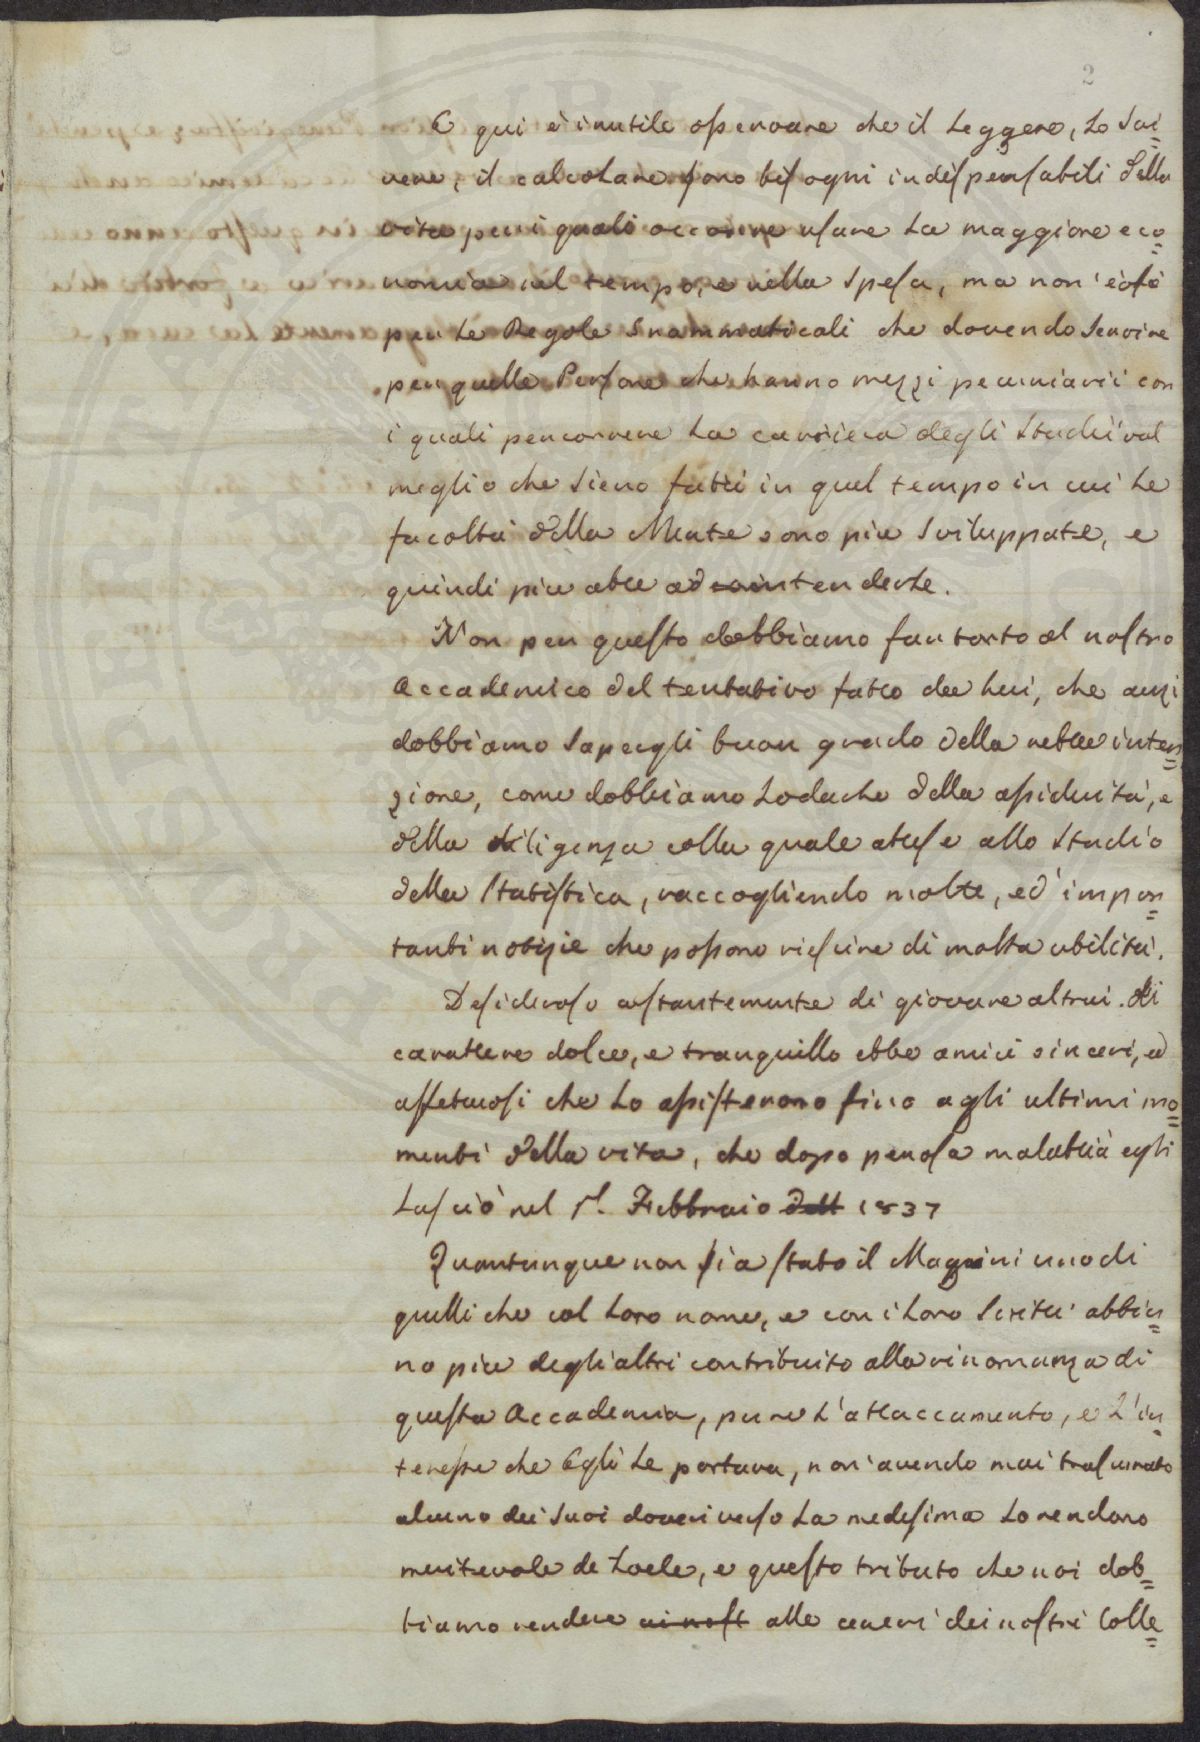 2
E qui è inutile osservare che il Leggere, Lo Scri=
vere, il calcolare sono bisogni indispensabili della
vita per i quali occorre usare La maggiore eco=
nomia nel tempo, e nella Spesa, ma non è così
per Le Regole Grammaticali che dovendo Servire
per quelle Persone che hanno mezzi pecuniarii con
i quali percorrere La carriera degli Studii val
meglio che Sieno fatti in quel tempo in cui Le
facoltà della Mente sono più Sviluppate, e
quindi più atte ad intenderle.
Non per questo dobbiamo far torto al nostro
Accademico del tentativo fatto da Lui, che anzi
dobbiamo Sapergli buon grado della retta inten=
zione, come dobbiamo Lodarlo della assiduità, e
della diligenza colla quale attese allo Studio
della Statistica, raccogliendo molte, ed impor=
tanti notizie che possono riescire di molta utilità.
Desideroso costantemente di giovare altrui. di
carattere dolce, e tranquillo ebbe amici sinceri, ed
affetuosi che Lo assisterono fino agli ultimi mo=
menti della vita, che dopo penosa malattia egli
Lasciò nel 1.º Febbraio dell 1837
Quantunque non sia stato il Magnini uno di
quelli che col Loro nome, e con i Loro Scritti abbia=
no più degli altri contribuito alla rinomanza di
questa Accademia, pure L'attaccamento, e L'in=
teresse che Egli Le portava, non avendo mai trascurato
alcuno dei Suoi doveri verso La medesima Lo rendono
meritevole di Lode, e questo tributo che noi dob=
biamo rendere ai nost alle ceneri dei nostri Colle=